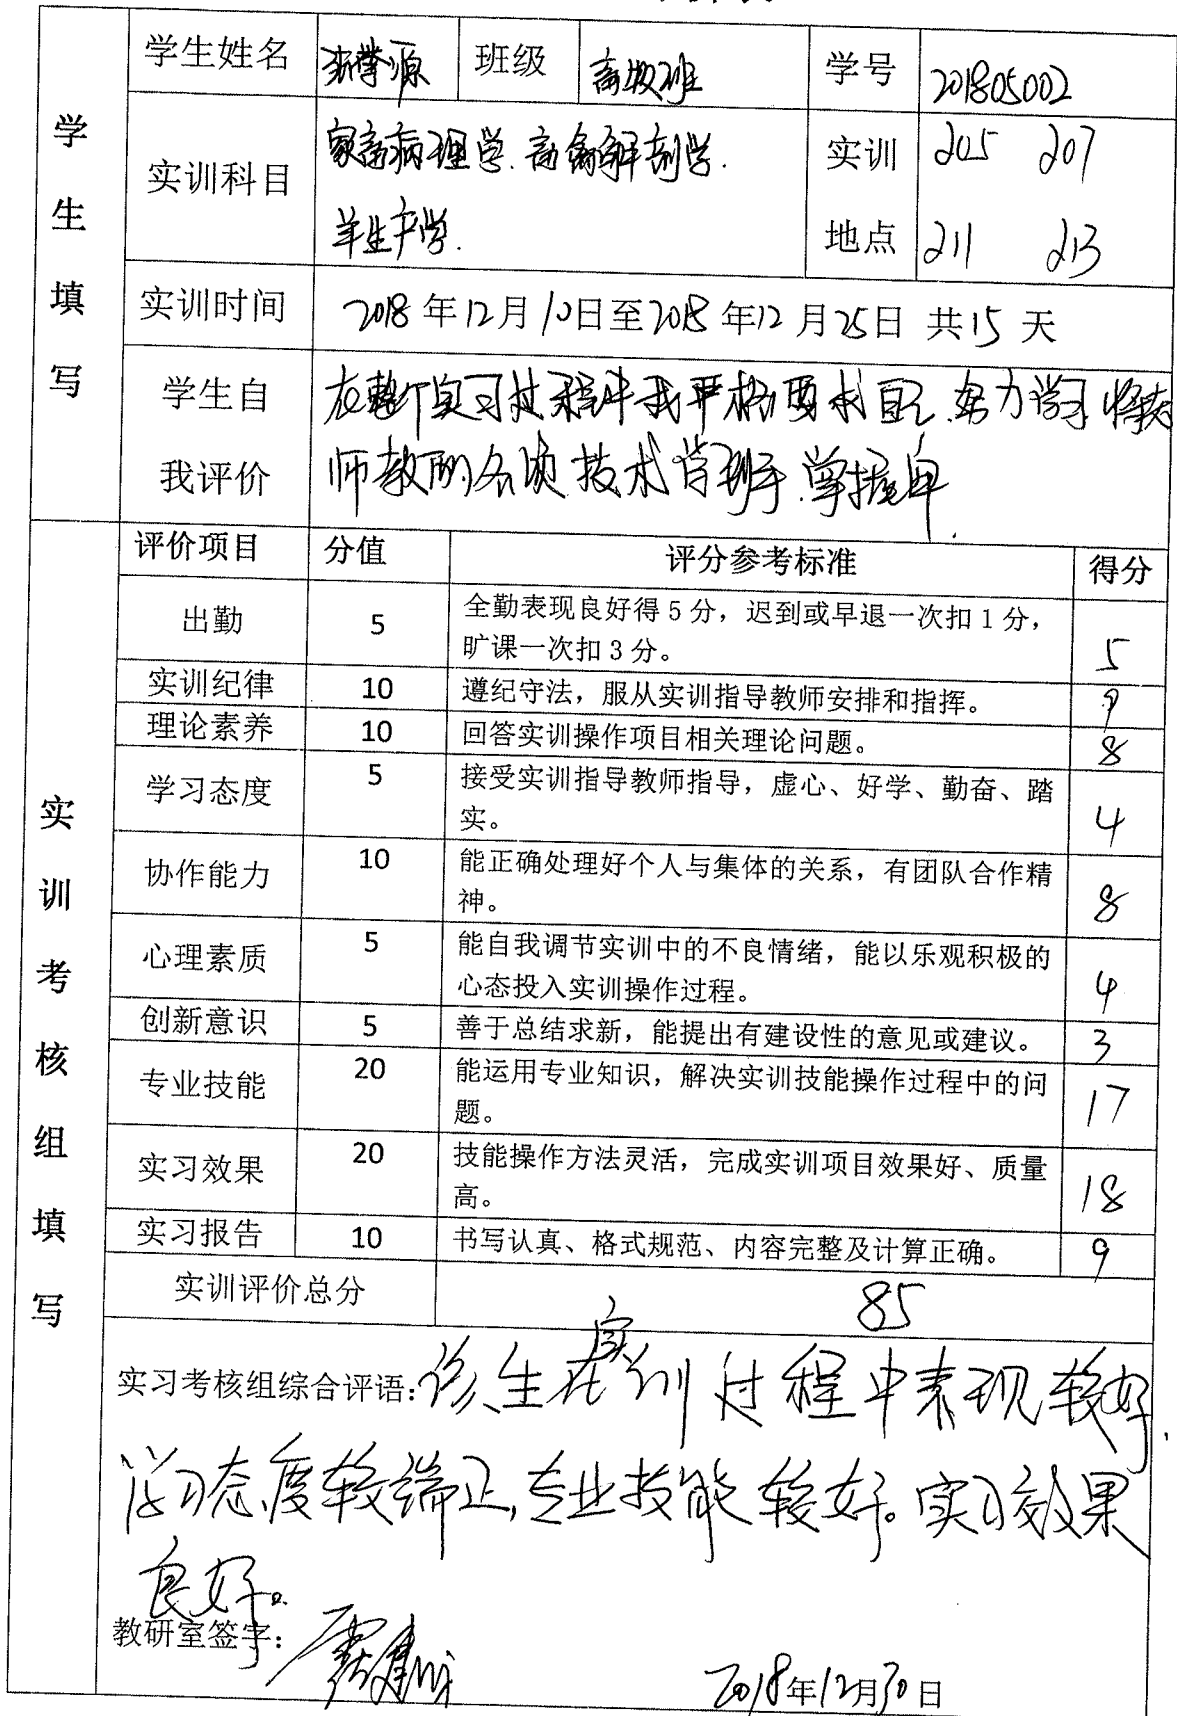 学生填写
学生姓名 张擎源 班级 畜牧班 学号 201805002
实训科目 家畜病理学.畜禽解剖学.
羊生产学.
实训地点 205 207
211 213
实训时间 2018年12月10日至2018年12月25日 共15天
学生自我评价 在整个实习过程中我严格要求自己.努力学习将老
师教的各项技术
实训考核组填写
评价项目 分值 评分参考标准 得分
出勤 5 全勤表现良好得5分，迟到或早退一次扣1分，
旷课一次扣3分。 5
实训纪律 10 遵纪守法，服从实训指导教师安排和指挥。 9
理论素养 10 回答实训操作项目相关理论问题。 8
学习态度 5 接受实训指导教师指导，虚心、好学、勤奋、踏
实。 4
协作能力 10 能正确处理好个人与集体的关系，有团队合作精
神。 8
心理素质 5 能自我调节实训中的不良情绪，能以乐观积极的
心态投入实训操作过程。 4
创新意识 5 善于总结求新，能提出有建设性的意见或建议。 3
专业技能 20 能运用专业知识，解决实训技能操作过程中的问
题。 17
实习效果 20 技能操作方法灵活，完成实训项目效果好、质量
高。 18
实习报告 10 书写认真、格式规范、内容完整及计算正确。 9
实训评价总分 85
实习考核组综合评语:该生在实训过程中表现较好.
学习态度较端正,专业技能较好。实习效果
良好。
教研室签字:
2018年12月30日